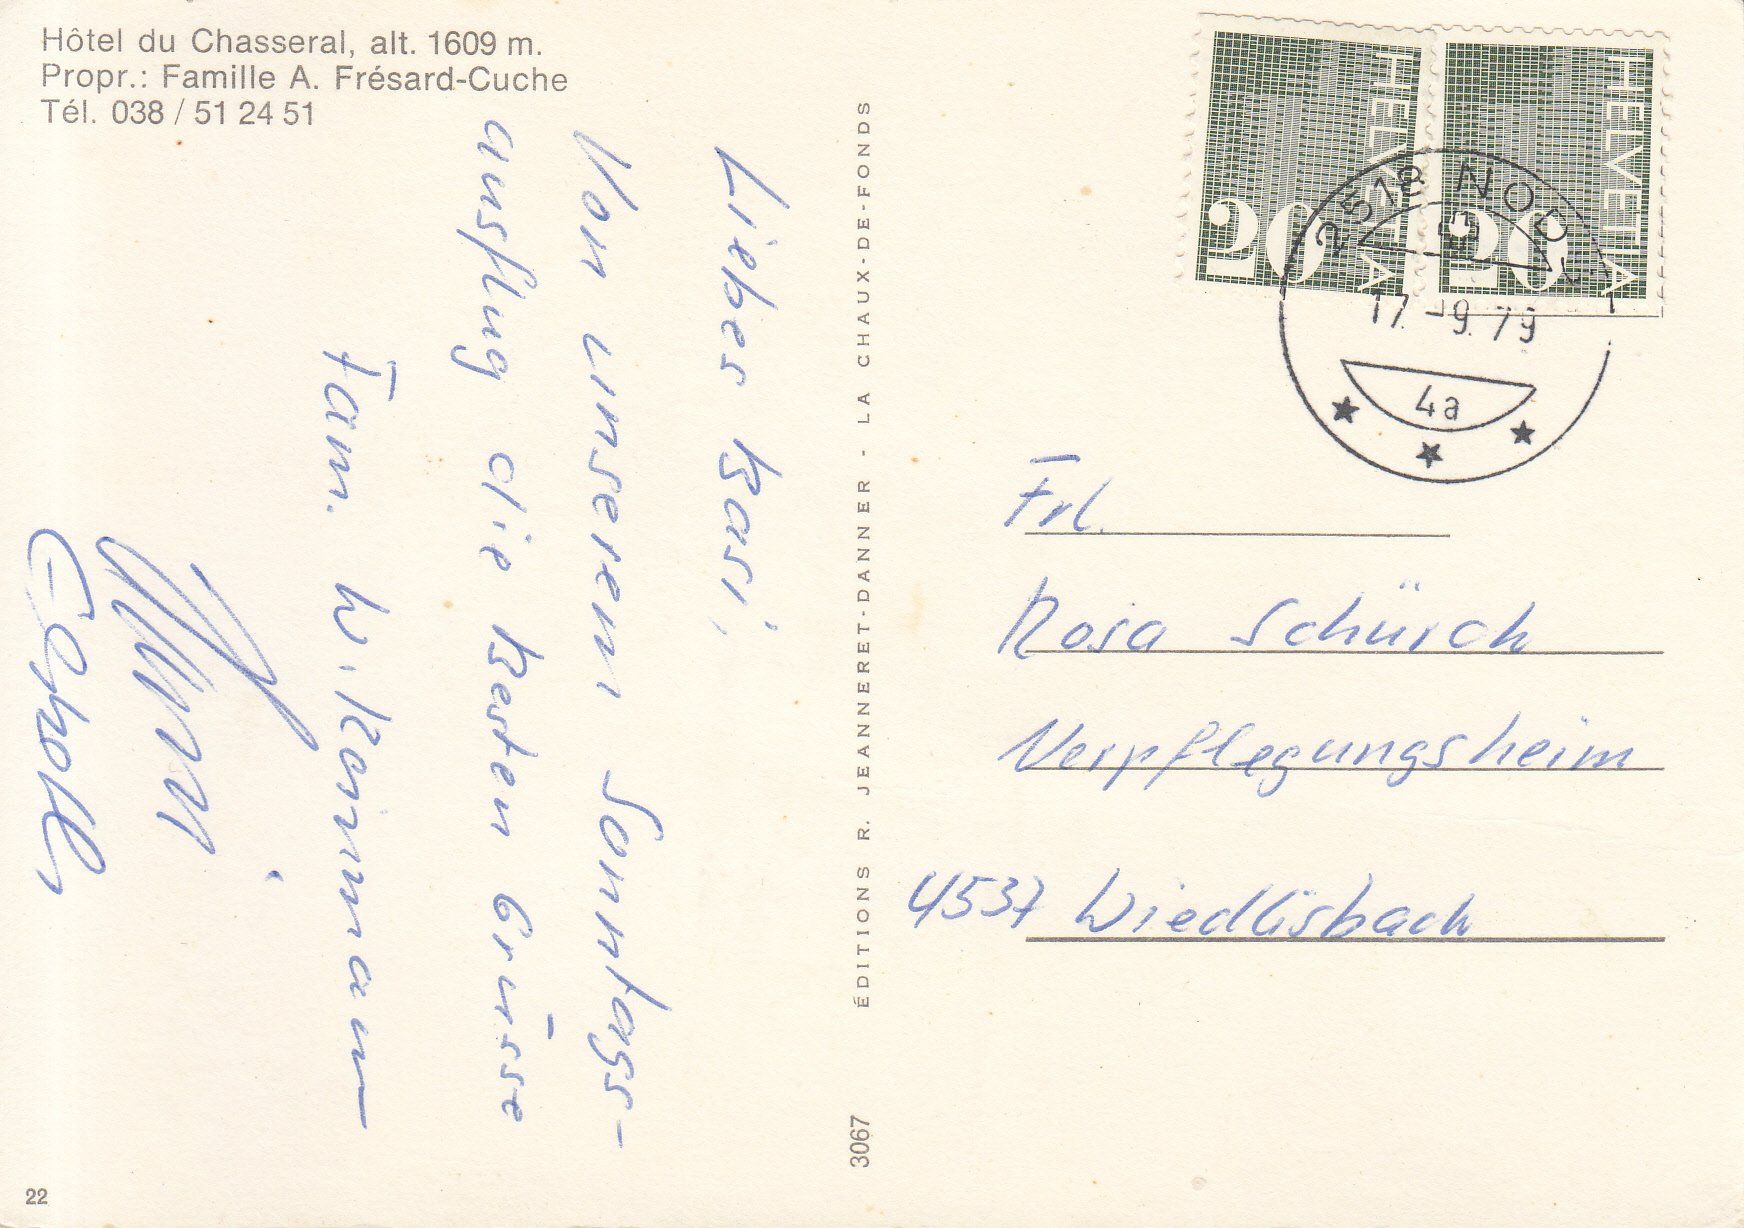 Hôtel du Chasseral, alt. 1609 m.
Propr.: Famille A. Frésard-Cuche
Tél. 038 / 51 24 51
Liebes Rosi,
Von unserem Sonntags-
ausflug die besten Grüsse
Fam. W. Kormann
22
ÉDITIONS R. JEANNERET-DANNER - LA CHAUX-DE-FONDS
3067
HELVETIA
20
HELVETIA
20
2518 NODS
17.-9.79
4a
Frl.
Rosa Schürch
Verpflegungsheim
4537 Wiedlisbach